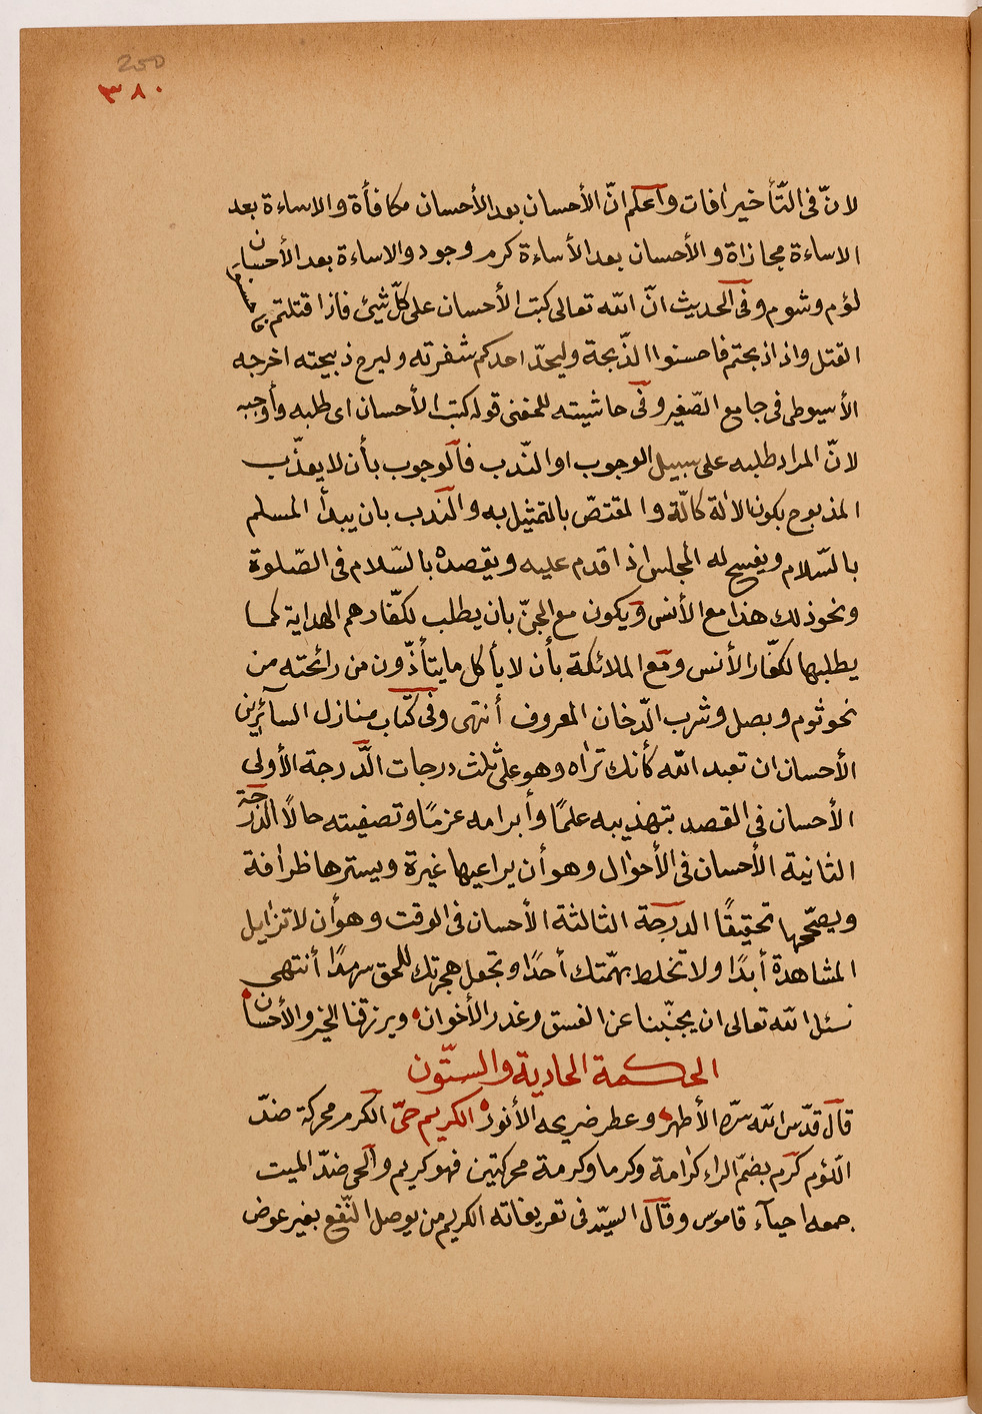 250
٣٨٠
لانّ فى التّأخير اٰفات واعلم انّ الأحسان بعد الأحسان مكافأة والاساءة بعد
الاساءة مجازاة والأحسان بعد الأساءة كرم وجود والاساءة بعد الأحسان
لؤم وشوم وفى الحديث انّ الله تعالى كتب الأحسان على كلّ شيئ فاذا قتلتم فاحسنوا
القتل واذا ذبحتم فاحسنوا الذّبحة وليحدّ احدكم شفرته وليرح ذبيحته اخرجه
الأسيوطى فى جامع الصّغير وفى حاشيته للحفنى قوله كتب الأحسان اى طلبه وأوجبه
لانّ المراد طلبه على سبيل الوجوب او النّدب فالوجوب بأن لا يعذّب
المذبوح بكون الاٰلة كالّة والمقتصّ بالتمثيل به والنّدب بان يبدأ المسلم
بالسّلام ويفسح له المجلس اذا قدم عليه ويقصده بالسّلام فى الصّلوة
ونحو ذلك هذا مع الأنس ويكون مع الجنّ بان يطلب لكفّارهم الهداية كما
يطلبها لكفّار الأنس ومع الملائكة بأن لا يأكل ما يتأذّون من رائحته من
نحو ثوم وبصل وشرب الدّخان المعروف أنتهى وفى كتاب منازل السآئرين
الأحسان ان تعبد الله كأنك تراٰه وهو على ثلث درجات الدّرجة الأولى
الأحسان فى القصد بتهذيبه علمًا وأبرامه عزمًا وتصفيته حالًا الدّرجة
الثانية الأحسان فى الأحوال وهو أن يراعيها غيرة ويسترها ظرافة
ويصحّحها تحقيقًا الدرجة الثالثة الأحسان فى الوقت وهو أن لا تزايل
المشاهدة أبدًا ولا تخلط بهمّتك أحدًا وتجعل هجرتك للحق سرمدًا أنتهى
نسئل الله تعالى ان يجنّبنا عن الفسق وغدر الأخوان ويرزقنا الخير والأحسان
الحكمة الحادية والستّون
قال قدّس الله سرّه الأطهر وعطر ضريحه الأنور الكريم حىّ الكرم محركة ضدّ
اللؤم كرم بضمّ الراء كرامة وكرما وكرمة محركتين فهو كريم والحى ضدّ الميت
جمعه احيآء قاموس وقال السيّد فى تعريفاته الكريم من يوصل النّفع بغير عوض